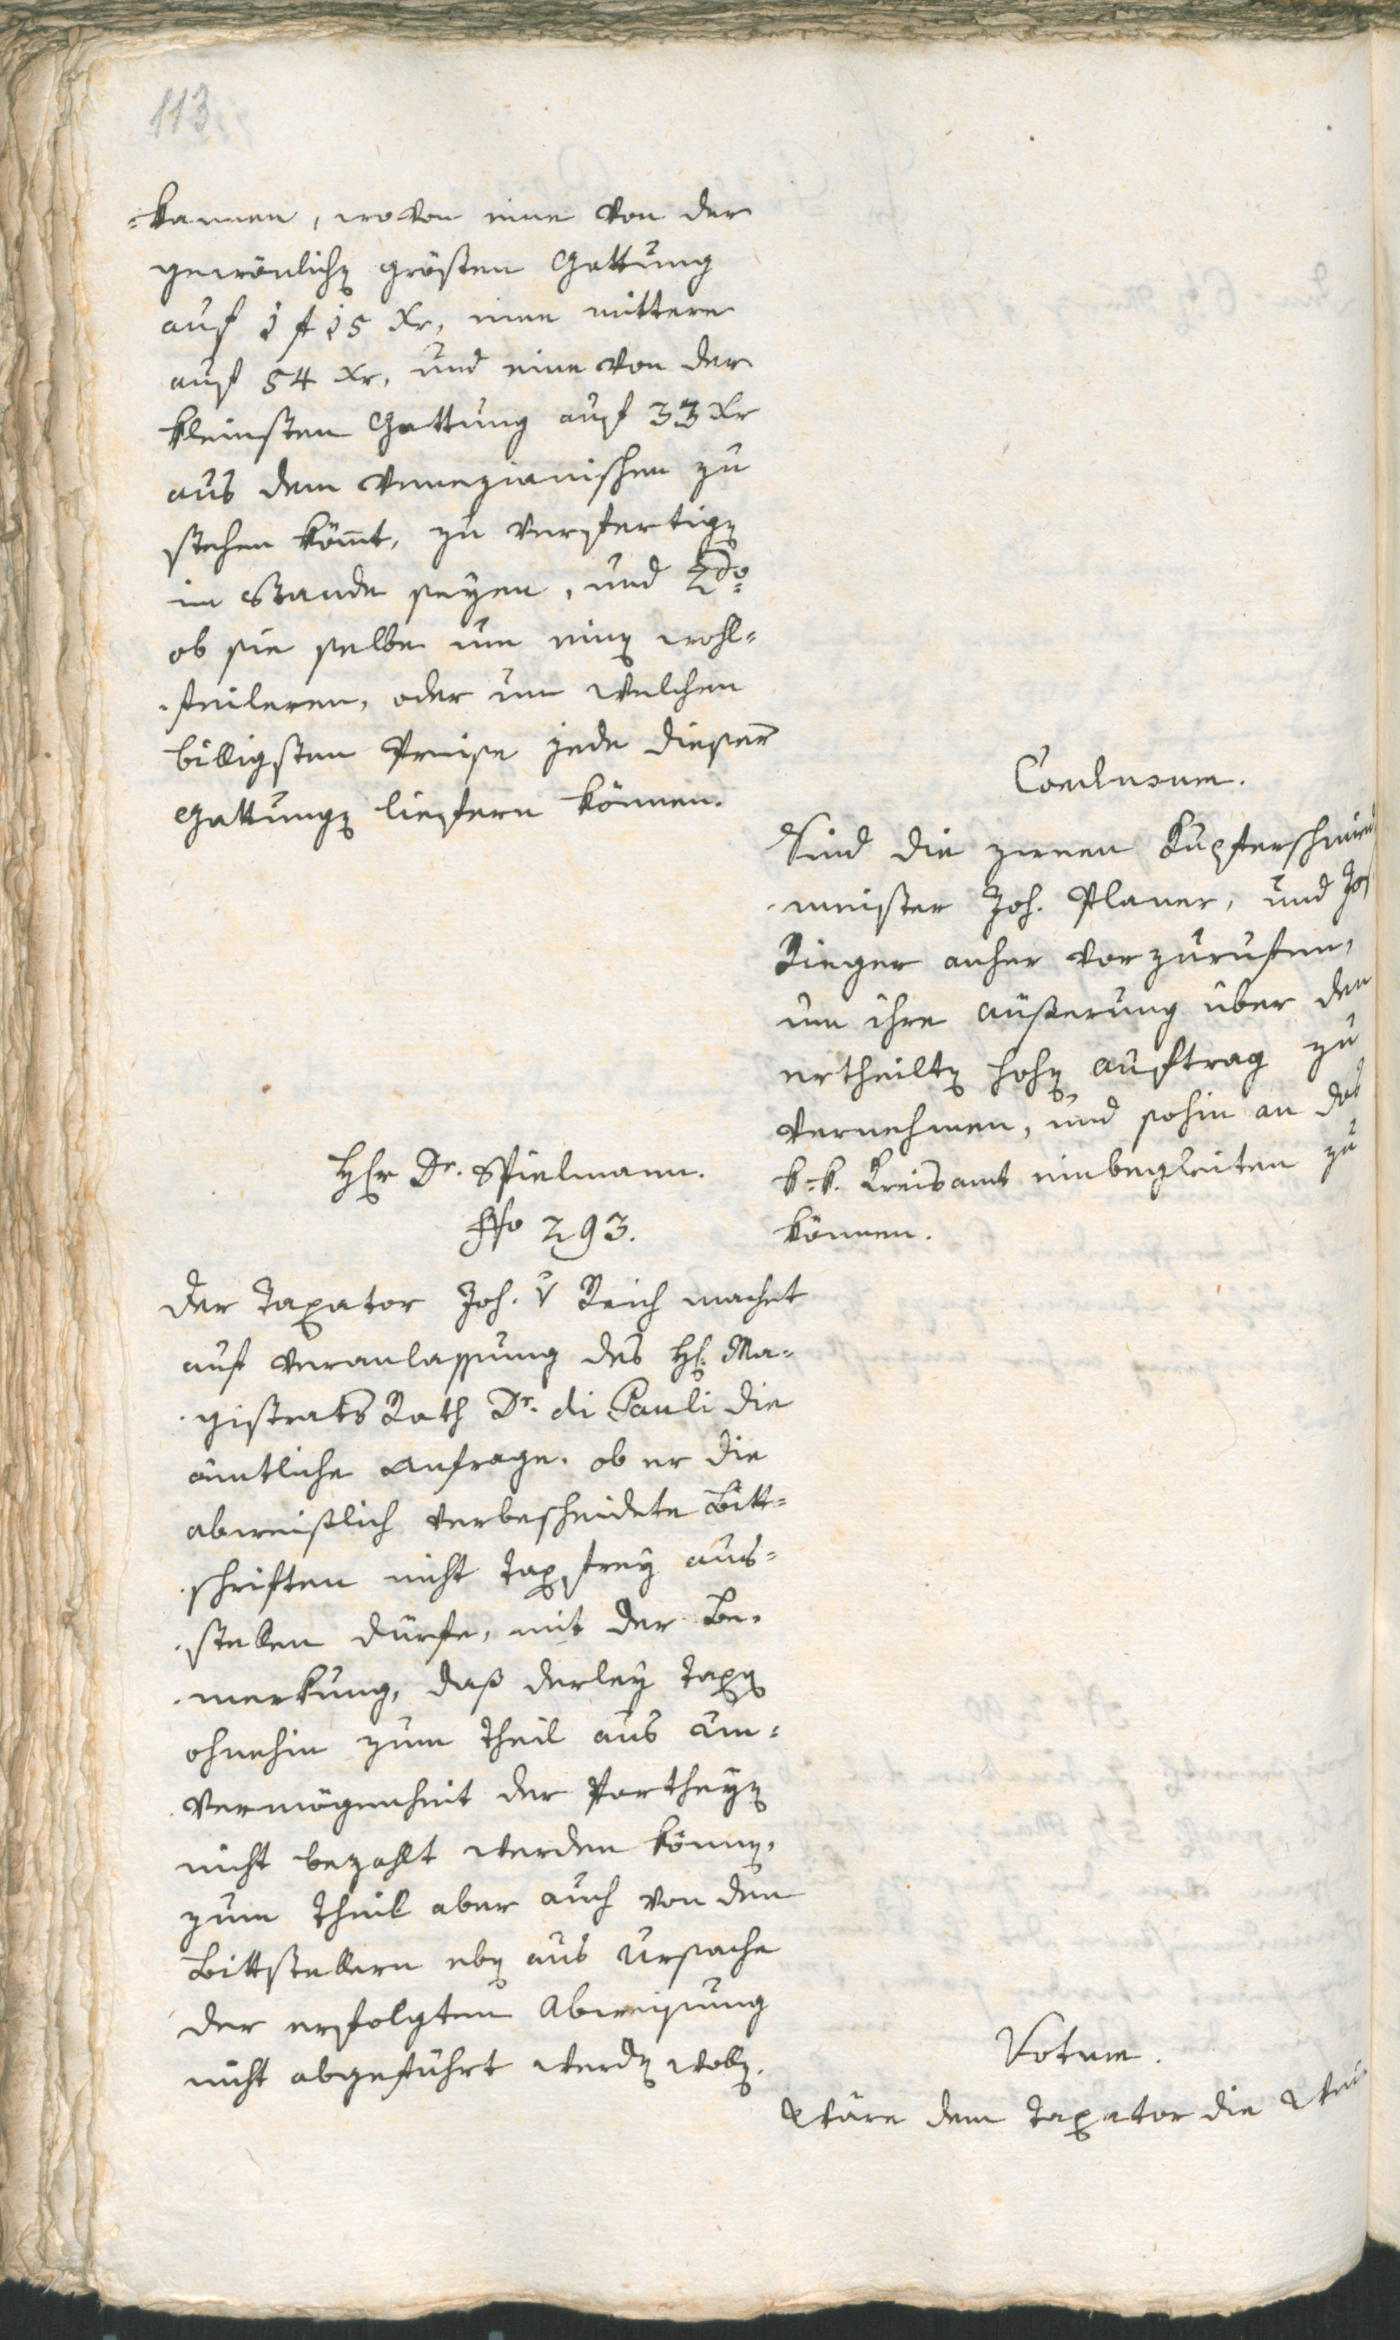 113
=kannen, wovon eine von der
gewönlichen größten Gattung
auf 1 f 15 Xr, eine mittere
auf 54 Xr, und eine von der
kleinsten Gattung auf 33 Xr
aus dem Venezianischen zu
stehen kömt, zu verfertigen
im Stande seyen, und 2do:
ob sie selbe um einen wohl=
feileren, oder um welchen
billigsten Preise jede dieser
Gattungen liefern können.
Conclusum.
Sind die zween Kupferschmied
meister Joh. Planer, und Jos
Rieger anher vorzurufen,
um ihre äußerung über den
ertheilten hohen auftrag zu
vernehmen, und sohin an das
k:k. Kreisamt einbegleiten zu
können.
Herr Dr. Spielmann.
Nro 293.
Der Taxator Joh. v Reich machet
auf Veranlassung des H. Ma=
gistrats Rath Dr. di Pauli die
ämtliche Anfrage. ob er die
abweißlich verbescheidete Bitt=
schriften nicht Taxfrey aus=
stellen dürfe, mit der Be=
merkung, daß derley Taxen
ohnehin zum Theil aus Un=
vermögenheit der Partheyen
nicht bezahlt werden können,
zum Theil aber auch von den
Bittstellern eben aus Ursache
der erfolgten Abweisung
nicht abgeführt werden wollen.
Votum.
Wäre dem Taxator die Wei